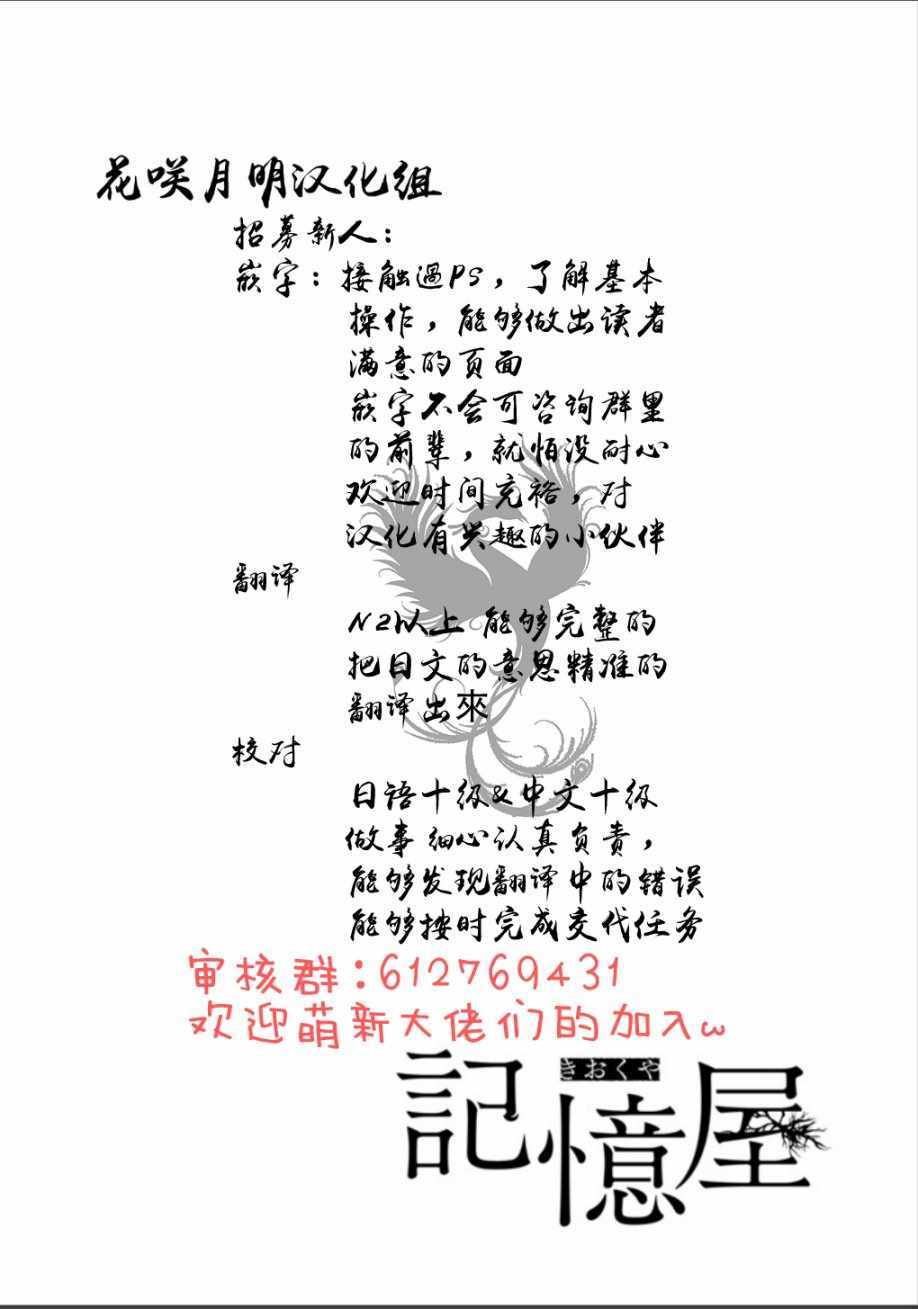 花咲月明汉化组
招募新人：
嵌字：接触過PS，了解基本
操作，能够做出读者
满意的页面
嵌字不会可咨询群里
的前辈，就怕没耐心
欢迎时间充裕，对
汉化有兴趣的小伙伴
翻译
N2以上 能够完整的
把日文的意思精准的
翻译出來
校对
日语十级&中文十级
做事细心认真负责，
能够发现翻译中的错误
能够按时完成交代任务
审核群：612769431
欢迎萌新大佬们的加入ω
きおくや
記憶屋